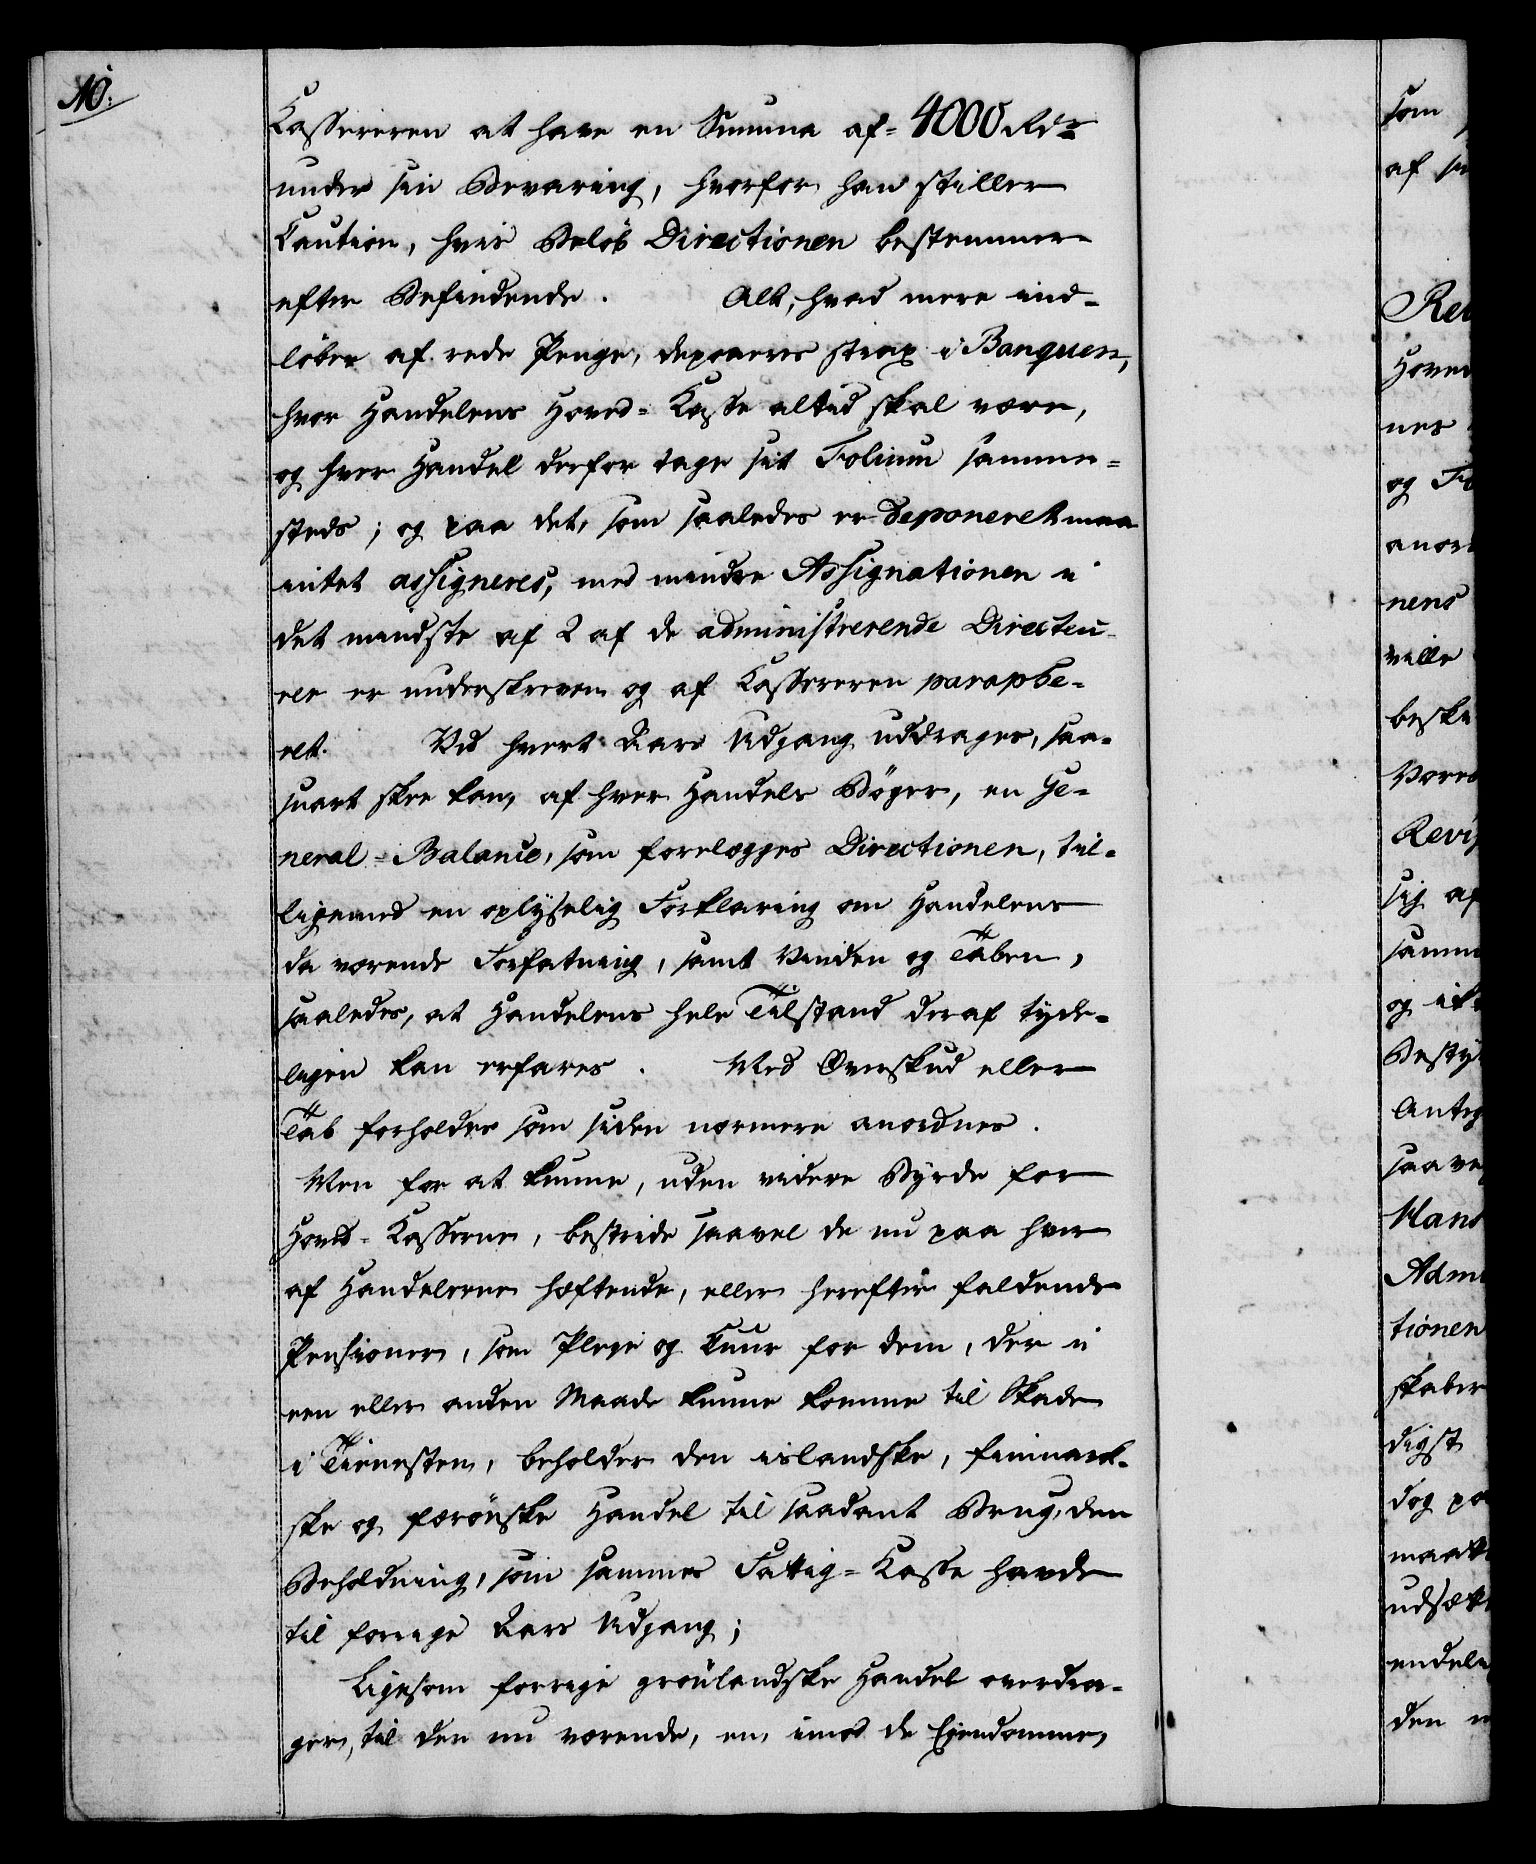 No:
Kassereren at have en Summa af 4000 Rdr
under sin Bevaring, hvorfor han stiller
Caution, hvis Beløb Directionen bestemmer
efter Befindende. Alt, hvad mere ind-
løber af rede Penge, deponeres strax i Banquen,
hvor Handelens Hoved-Kasse altid skal være,
og hver Handel derfor tage sit Folium samme-
steds; og paa det, som saaledes er deponeret maa
intet assigneres, med mindre Assignationen i
det mindste af 2 af de administrerende Directeu-
rer er underskreven og af Kassereren paraphe-
ret. Ved hvert Aars Udgang uddrages, saa-
snart skee kan, af hver Handels Bøger, en Ge-
neral-Balance, som forelægges Directionen, til-
ligemed en oplyselig Forklaring om Handelens
da værende Forfatning, samt Vinden og Taben,
saaledes, at Handelens hele Tilstand deraf tyde-
ligen kan erfares. Med Overskud eller
Tab forholdes som siden nærmere anordnes.
Men for at kunne, uden videre Byrde for
Hoved-Kasserne, bestride saavel de nu paa hver
af Handelerne hæftende, eller herefter faldende
Pensioner, som Pleje og Kuur for dem, der i
een eller anden Maade kunne komme til Skade
i Tienesten, beholder den islandske, finmark-
ske og færøiske Handel til saadant Brug, den
Beholdning, som sammes Fattig-Kasse havde
til forrige Aars Udgang;
Ligesom forrige grønlandske Handel overdra-
ger, til den nu værende, en, imod de Eiendomme,
som
af
nes
og
nens
ville
Revi
sig af
og
tionen
digst
dog
den